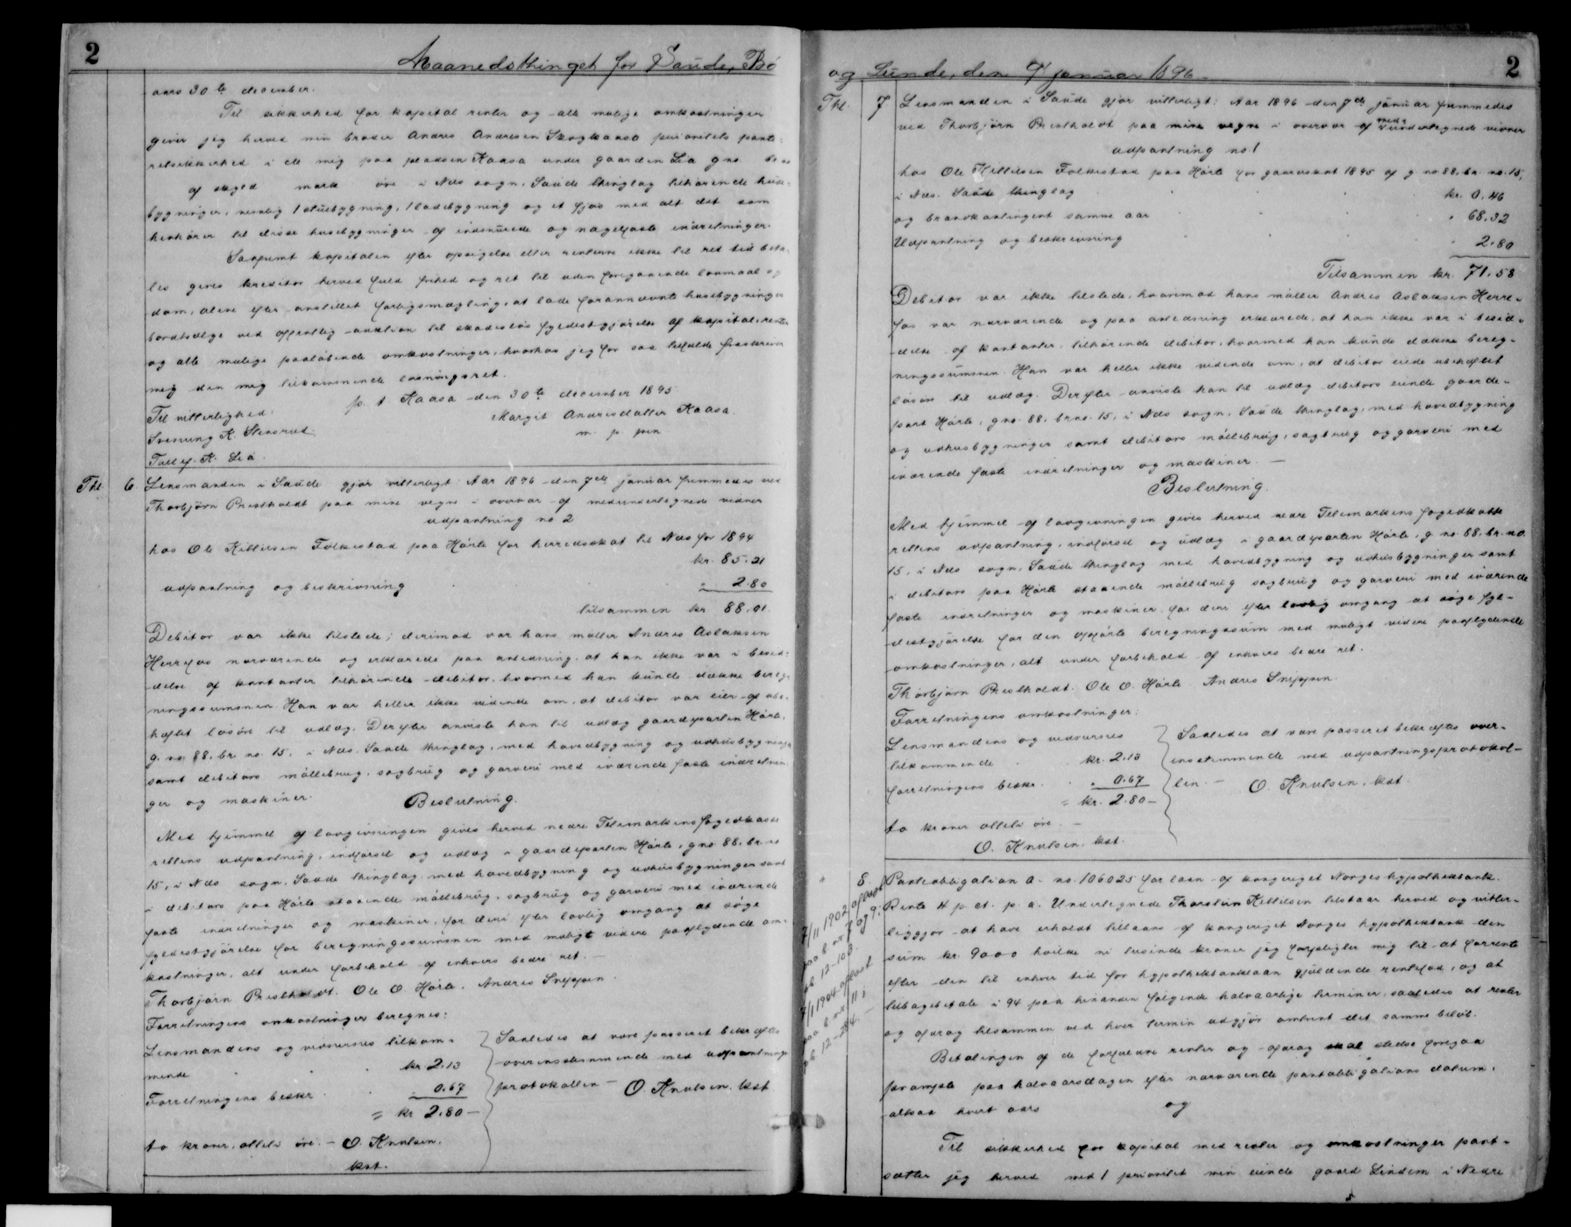 2
Maanedsthinget for Saude, Bø
aars 30te december.
Til sikkerhed for kapital renter og alle mulige omkostninger
giver jeg herved min broder Andres Andresen Skogkaasa prioritets pante-
retsikkerhed i de mig paa pladsen Kaasa under gaarden Lia gno. br no
af skyld mark øre i Nes sogn, Saude thinglag tilhørende huse-
bygninger, nemlig 1 stuebygning, 1 ladebygning og et fjøs med alt det som
henhører til disse husebygninger af indmurede og nagelfaste indretninger.
Saafremt kapitalen efter opsigelse eller renterne ikke til ret tid beta-
les gives kreditor herved fuld frihed og ret til uden foregaaende lovmaal og
dom, alene efter anstillet forligsmægling, at lade forannævnte husebygninger
bortsælge ved offentlig auktion til skadesløs fyldestgjørelse af kapital, renter
og alle mulige paaløbende omkostninger, hvorhos jeg for saa tilfælde fraskriver
mig den mig tilkommende løsningsret.
p. t. Kaasa den 30te december 1895
Til vitterlighed: Margit Andresdatter Kaasa.
Svenung K. Stensrud m. p. pen
Tallef K. Lia.
Thl. 6. Lensmanden i Saude gjør vitterligt: Aar 1896 den 7de januar fremmedes ved
Thorbjørn Prestholdt paa mine vegne i overvær af medundertegnede vidner
udpantning no 2
hos Ole Killilsen Folkestad paa Hørte for herredsskat til Nes for 1894
kr. 85.21
udpantning og beskrivning " 2.80
tilsammen kr. 88.01
Debitor var ikke tilstede; derimod var hans møller Andres Aslaksen
Herrefos nærværende og erklærede paa anledning, at han ikke var i besid-
delse af kontanter tilhørende debitor, hvormed han kunde dække bereg-
ningssummen. Han var heller ikke vidende om, at debitor var eier af ube-
hæftet løsøre til udlæg. Derefter anviste han til udlæg gaardparten Hørte,
g. no. 88. br. no. 15. i Nes. Saude thinglag, med hovedbygning og udhusbygninger
samt debitors møllebrug, sagbrug og garveri med iværende faste indretnin-
ger og maskiner. Beslutning.
Med hjemmel af lovgivningen gives herved nedre Telemarkens fogedkasse
rettens udpantning, indførsel og udlæg i gaardparten Hørte, g no 88. br. no
15, i Nes sogn, Saude thinglag med hovedbygning og udhusbygninger samt
i debitors paa Hørte staaende møllebrug, sagbrug og garveri med iværende
faste indretninger og maskiner, for deri efter lovlig omgang at søge
fyldestgjørelse for beregningssummen med muligt videre paafølgende om-
kostninger, alt under forbehold af enhvers bedre ret.—
Thorbjørn Prestholdt. Ole O. Hørte. Andres Sneppen.
Forretningens omkostninger beregnes:
Lensmandens og vidnernes tilkom-
mende kr 2.13
Forretningens beskr. " 0.67
= kr 2.80—
to kroner, otteti øre.— O. Knutsen.
kst.
Saaledes at være passeret bekræftes
overensstemmende med udpantnings-
protokollen— O Knutsen. kst
og Lunde, den 9/ januar 1896— 2
Thl. 7 Lensmanden i Saude gjør vitterligt: Aar 1896 den 7de januar fremmedes
ved Thorbjørn Prestholdt paa mine vegne i overvær af medundertegnede vidner
udpantning no 1
hos Ole Killilsen Folkestad paa Hørte for gaardsskat 1895 af g no 88. br. no. 15,
i Nes. Saude thinglag kr. 0.46
og brandkontingent samme aar " 68.32
Udpantning og beskrivning " 2.80
Tilsammen kr. 71.58
Debitor var ikke tilstede, hvorimod hans møller Andres Aslaksen Herre-
fos var nærværende og paa anledning erklærede, at han ikke var i besid-
delse af kontanter tilhørende debitor, hvormed han kunde dække bereg-
ningssummen. Han var heller ikke vidende om, at debitor eiede ubehæftet
løsøre til udlæg. Derefter anviste han til udlæg debitors eiende gaard-
part Hørte, g no. 88. br no. 15, i Nes sogn, Saude thinglag, med hovedbygning
og udhusbygninger samt debitors møllebrug, sagbrug og garveri med
iværende faste indretninger og maskiner.—
Beslutning.
Med hjemmel af lovgivningen gives herved nedre Telemarkens fogedkasse
rettens udpantning, indførsel og udlæg i gaardparten Hørte, g no. 88. br. no
15, i Nes sogn, Saude thinglag med hovedbygning og udhusbygninger samt
i debitors paa Hørte staaende møllebrug sagbrug og garveri med iværende
faste indretninger og maskiner, for deri efter lovlig omgang at søge fyl-
destgjørelse for den opførte beregningssum med muligt videre paafølgende
omkostninger, alt under forbehold af enhvers bedre ret.
Thorbjørn Prestholdt. Ole O. Hørte. Andres Sneppen.
Forretningens omkostninger:
Lensmandens og vidnernes
tilkommende kr. 2.13
forretningens beskr. " 0.67
= kr. 2.80—
to kroner otteti øre.—
O. Knutsen. kst.
Saaledes at være passeret bekræftes over-
ensstemmende med udpantningsprotokol-
len.— O. Knutsen. kst.
7/11 1902 aflæst
7/1 1904 aflæst
" 8. Panteobligation A. no. 106025 for laan af kongeriget Norges hypothekbank.
Rente 4 p. ct. p. a. Undertegnede Thorstein Killilsen tilstaar herved og vitter-
liggjør at have erholdt tillaans af kongeriget Norges hypothekbank den
sum kr. 9000 hvilke ni tusinde kroner jeg forpligter mig til at forrente
efter den til enhver tid for hypothekbanklaan gjældende rentefod, og at
tilbagebetale i 94 paa hinanden følgende halvaarlige terminer, saaledes at renter
og afdrag tilsammen ved hver termin udgjør omtrent det samme beløb.
Betalingen af de forfaldne renter og afdrag skal stedse foregaa
præcis paa halvaarsdagen efter nærværende pantobligations datum.
altsaa hvert aars og
Til sikkerhed for kapital med renter og omkostninger pant-
sætter jeg herved med 1 prioritet min eiende gaard Lindem i Nedre